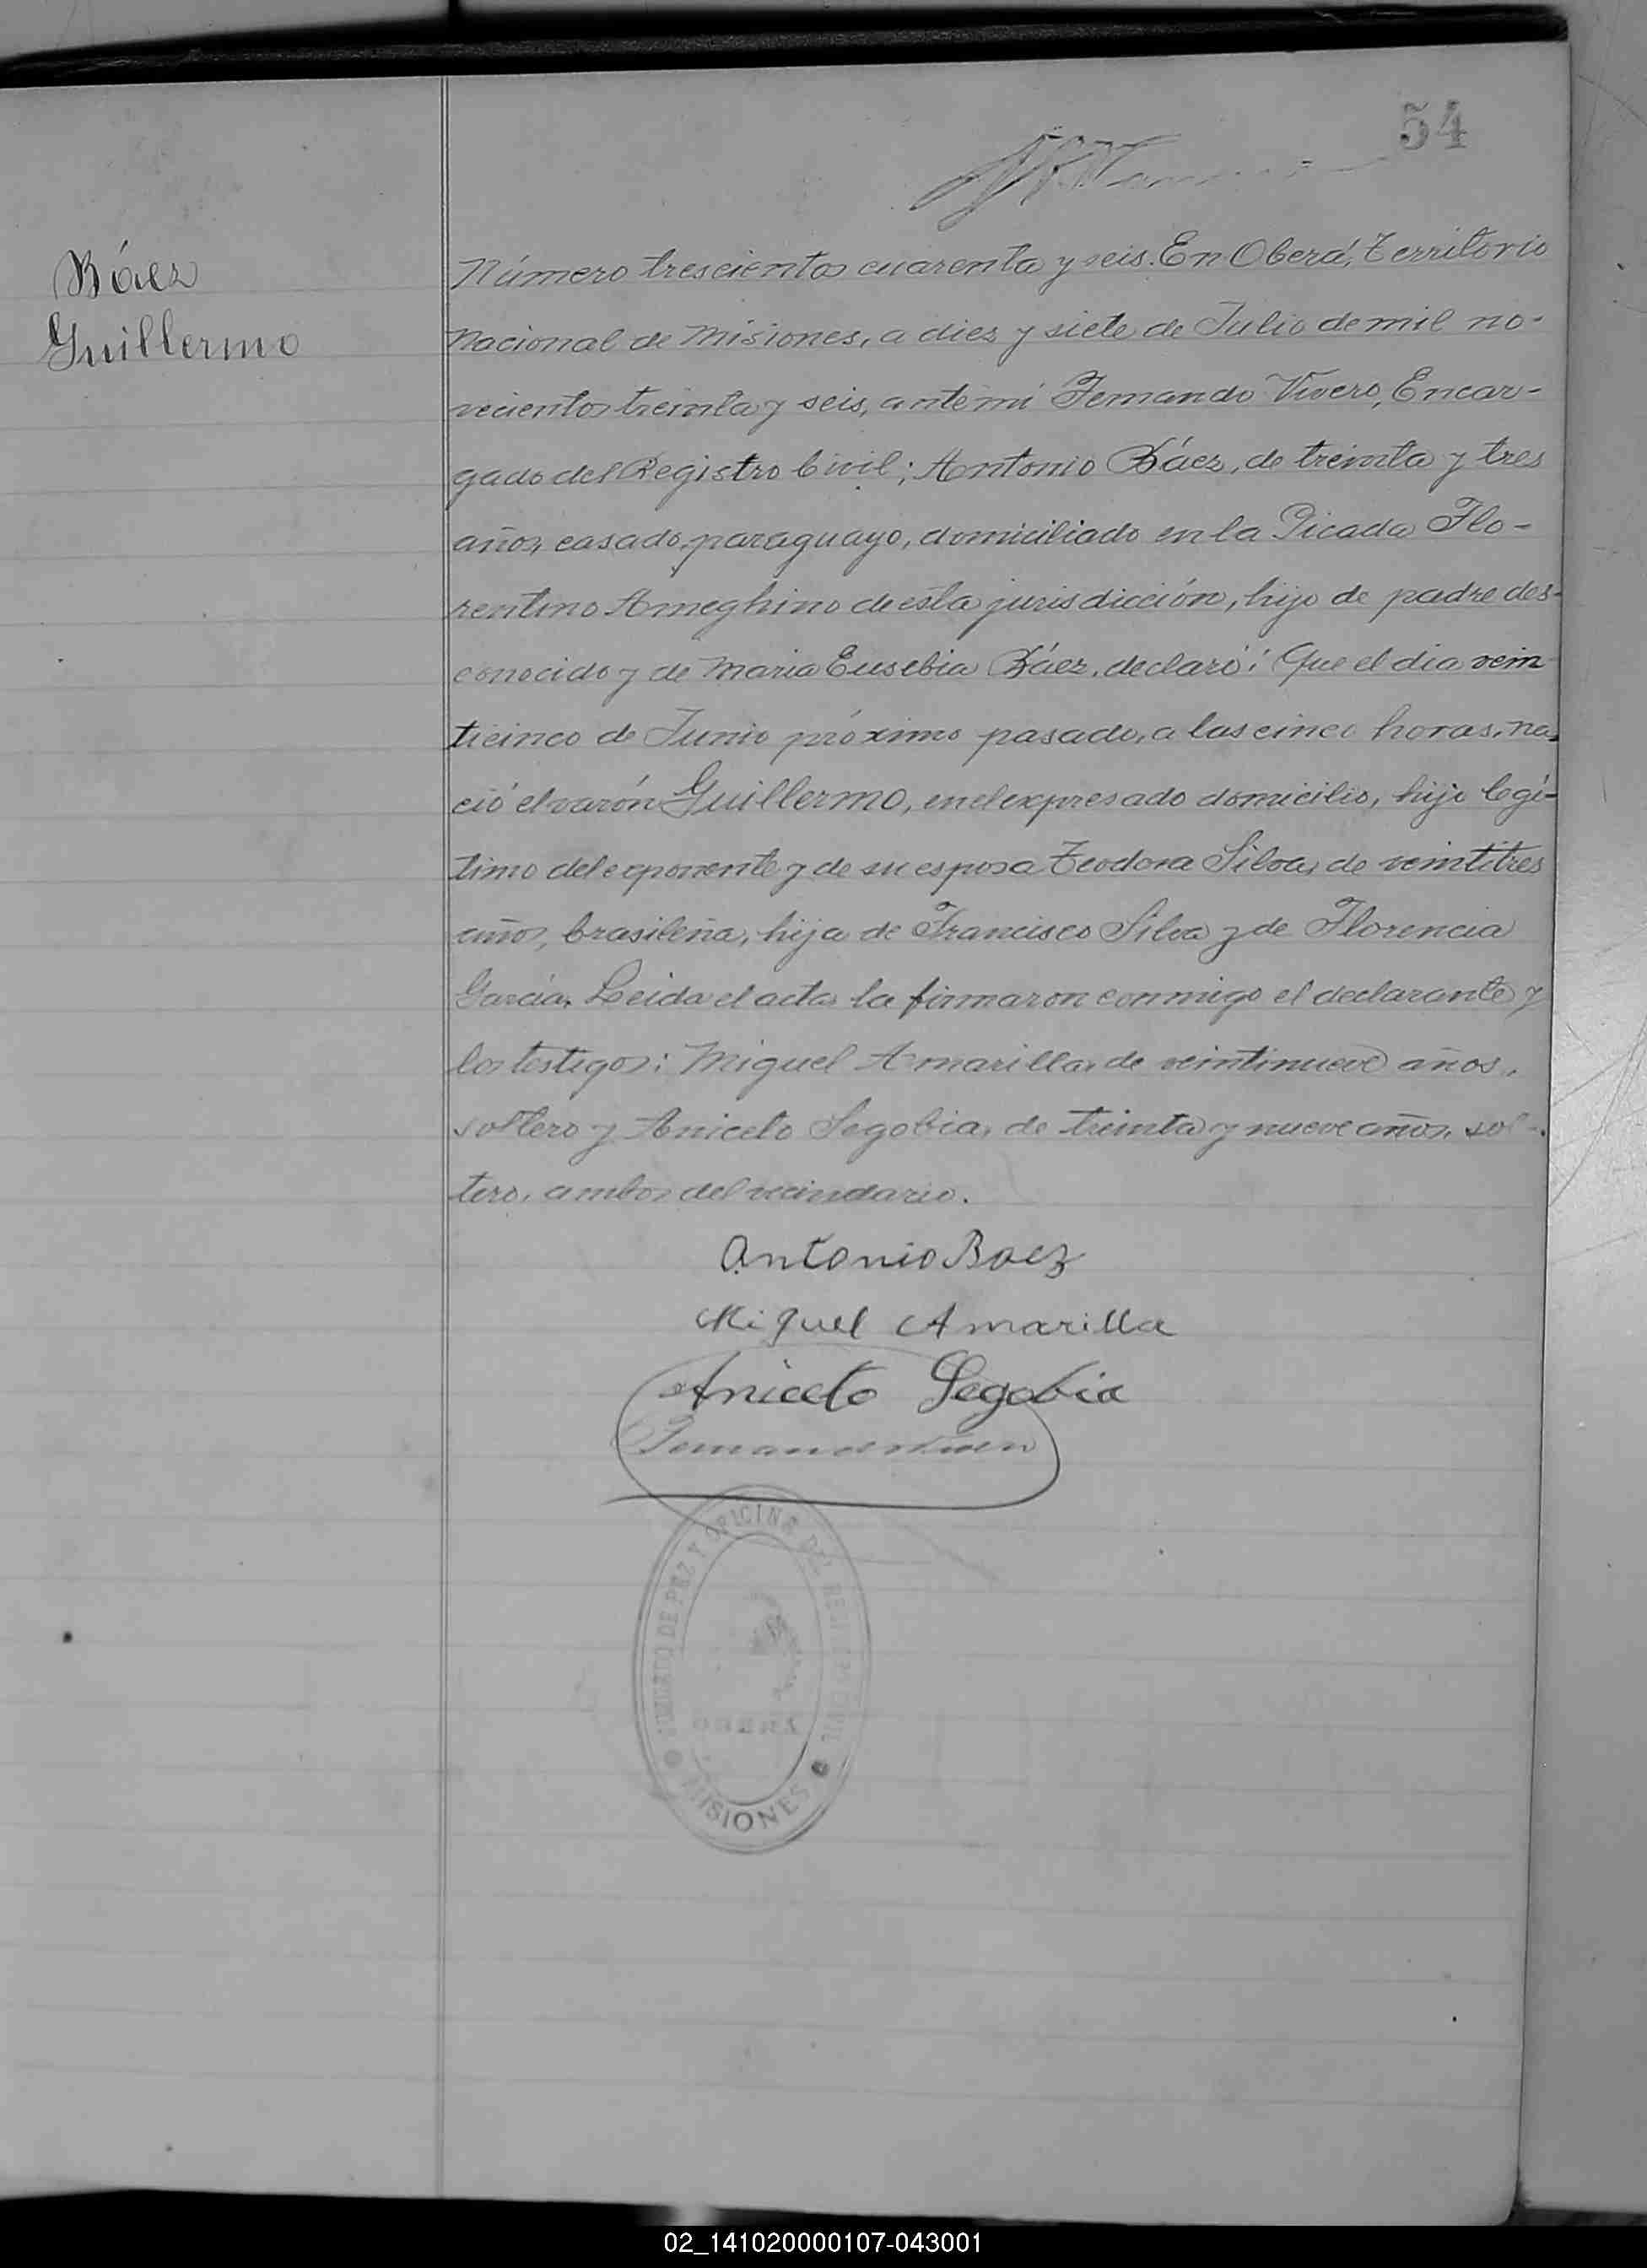 54
Báez
Guillermo
Número trescientos cuarenta y seis. En Oberá, Territorio
Nacional de Misiones, a diez y siete de Julio de mil no-
vecientos treinta y seis, ante mí Fernando Vivero, Encar-
gado del Registro Civil; Antonio Báez, de treinta y tres
años, casado, paraguayo, domiciliado en la Picada Flo-
rentino Ameghino de esta jurisdicción, hijo de padre des-
conocido y de Maria Eusebia Báez, declaró: Que el día vein
ticinco de Junio próximo pasado, a las cinco horas, na-
ció el varón Guillermo, en el expresado domicilio, hijo legí-
timo del exponente y de su esposa Teodora Silva, de veintitres
años, brasileña, hija de Francisco Silva y de Florencia
García. Leida el acta, la firmaron conmigo el declarante y
los testigos: Miguel Amarilla, de veintinueve años,
soltero y Aniceto Segobia, de treinta y nueve años, sol-
tero, ambos del vecindario.
Antonio Baez
Miguel Amarilla
Aniceto Segobia
JUZGADO DE PAZ Y OFICINA DEL REGISTRO CIVIL
OBERA
MISIONES
02_141020000107-043001